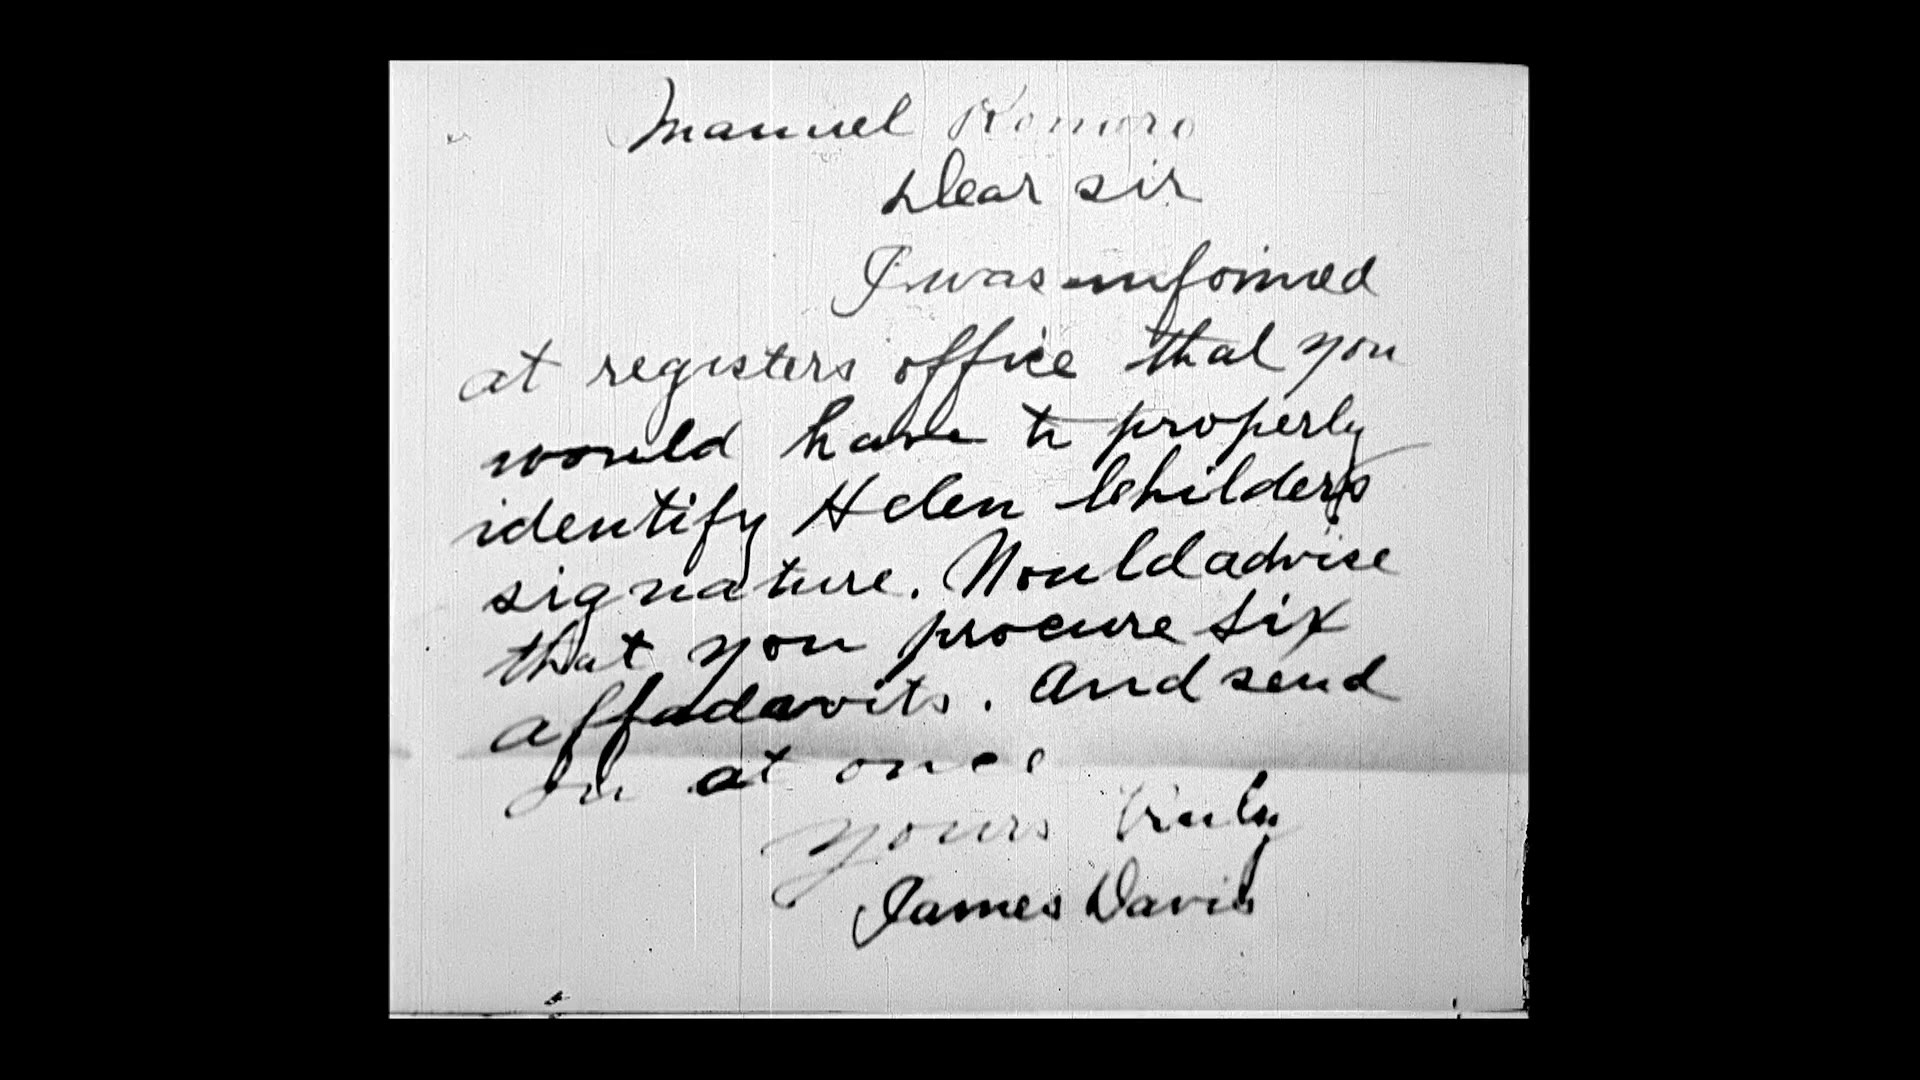 Manuel Romoro
Dear sir
I was informed
at registers office that you
would have to properly
identify Helen Childers
signature. Would advise
that you procure six
affadavits. And send
on at once
yours truly
James Davis